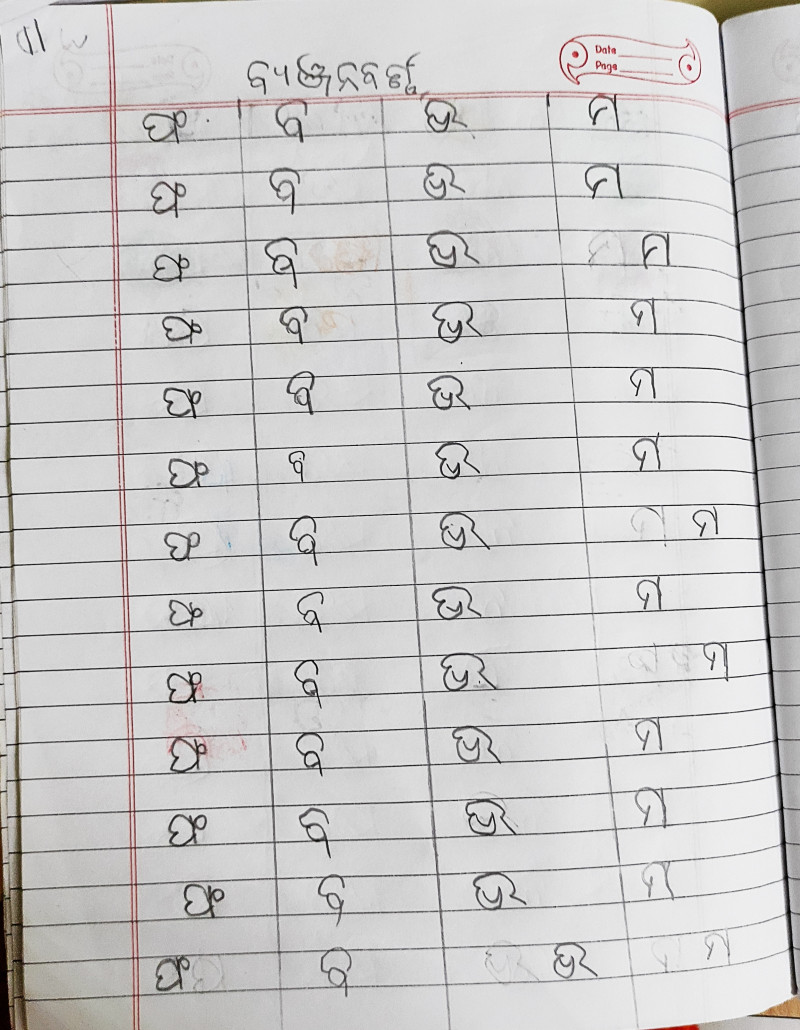 Date
Page
ବ୍ୟଞ୍ଜନବର୍ଣ୍ଣ
ଫ ବ ଭ ମ
ଫ ବ ଭ ମ
ଫ ବ ଭ ମ
ଫ ବ ଭ ମ
ଫ ବ ଭ ମ
ଫ ବ ଭ ମ
ଫ ବ ଭ ମ
ଫ ବ ଭ ମ
ଫ ବ ଭ ମ
ଫ ବ ଭ ମ
ଫ ବ ଭ ମ
ଫ ବ ଭ ମ
ଫ ବ ଭ ମ